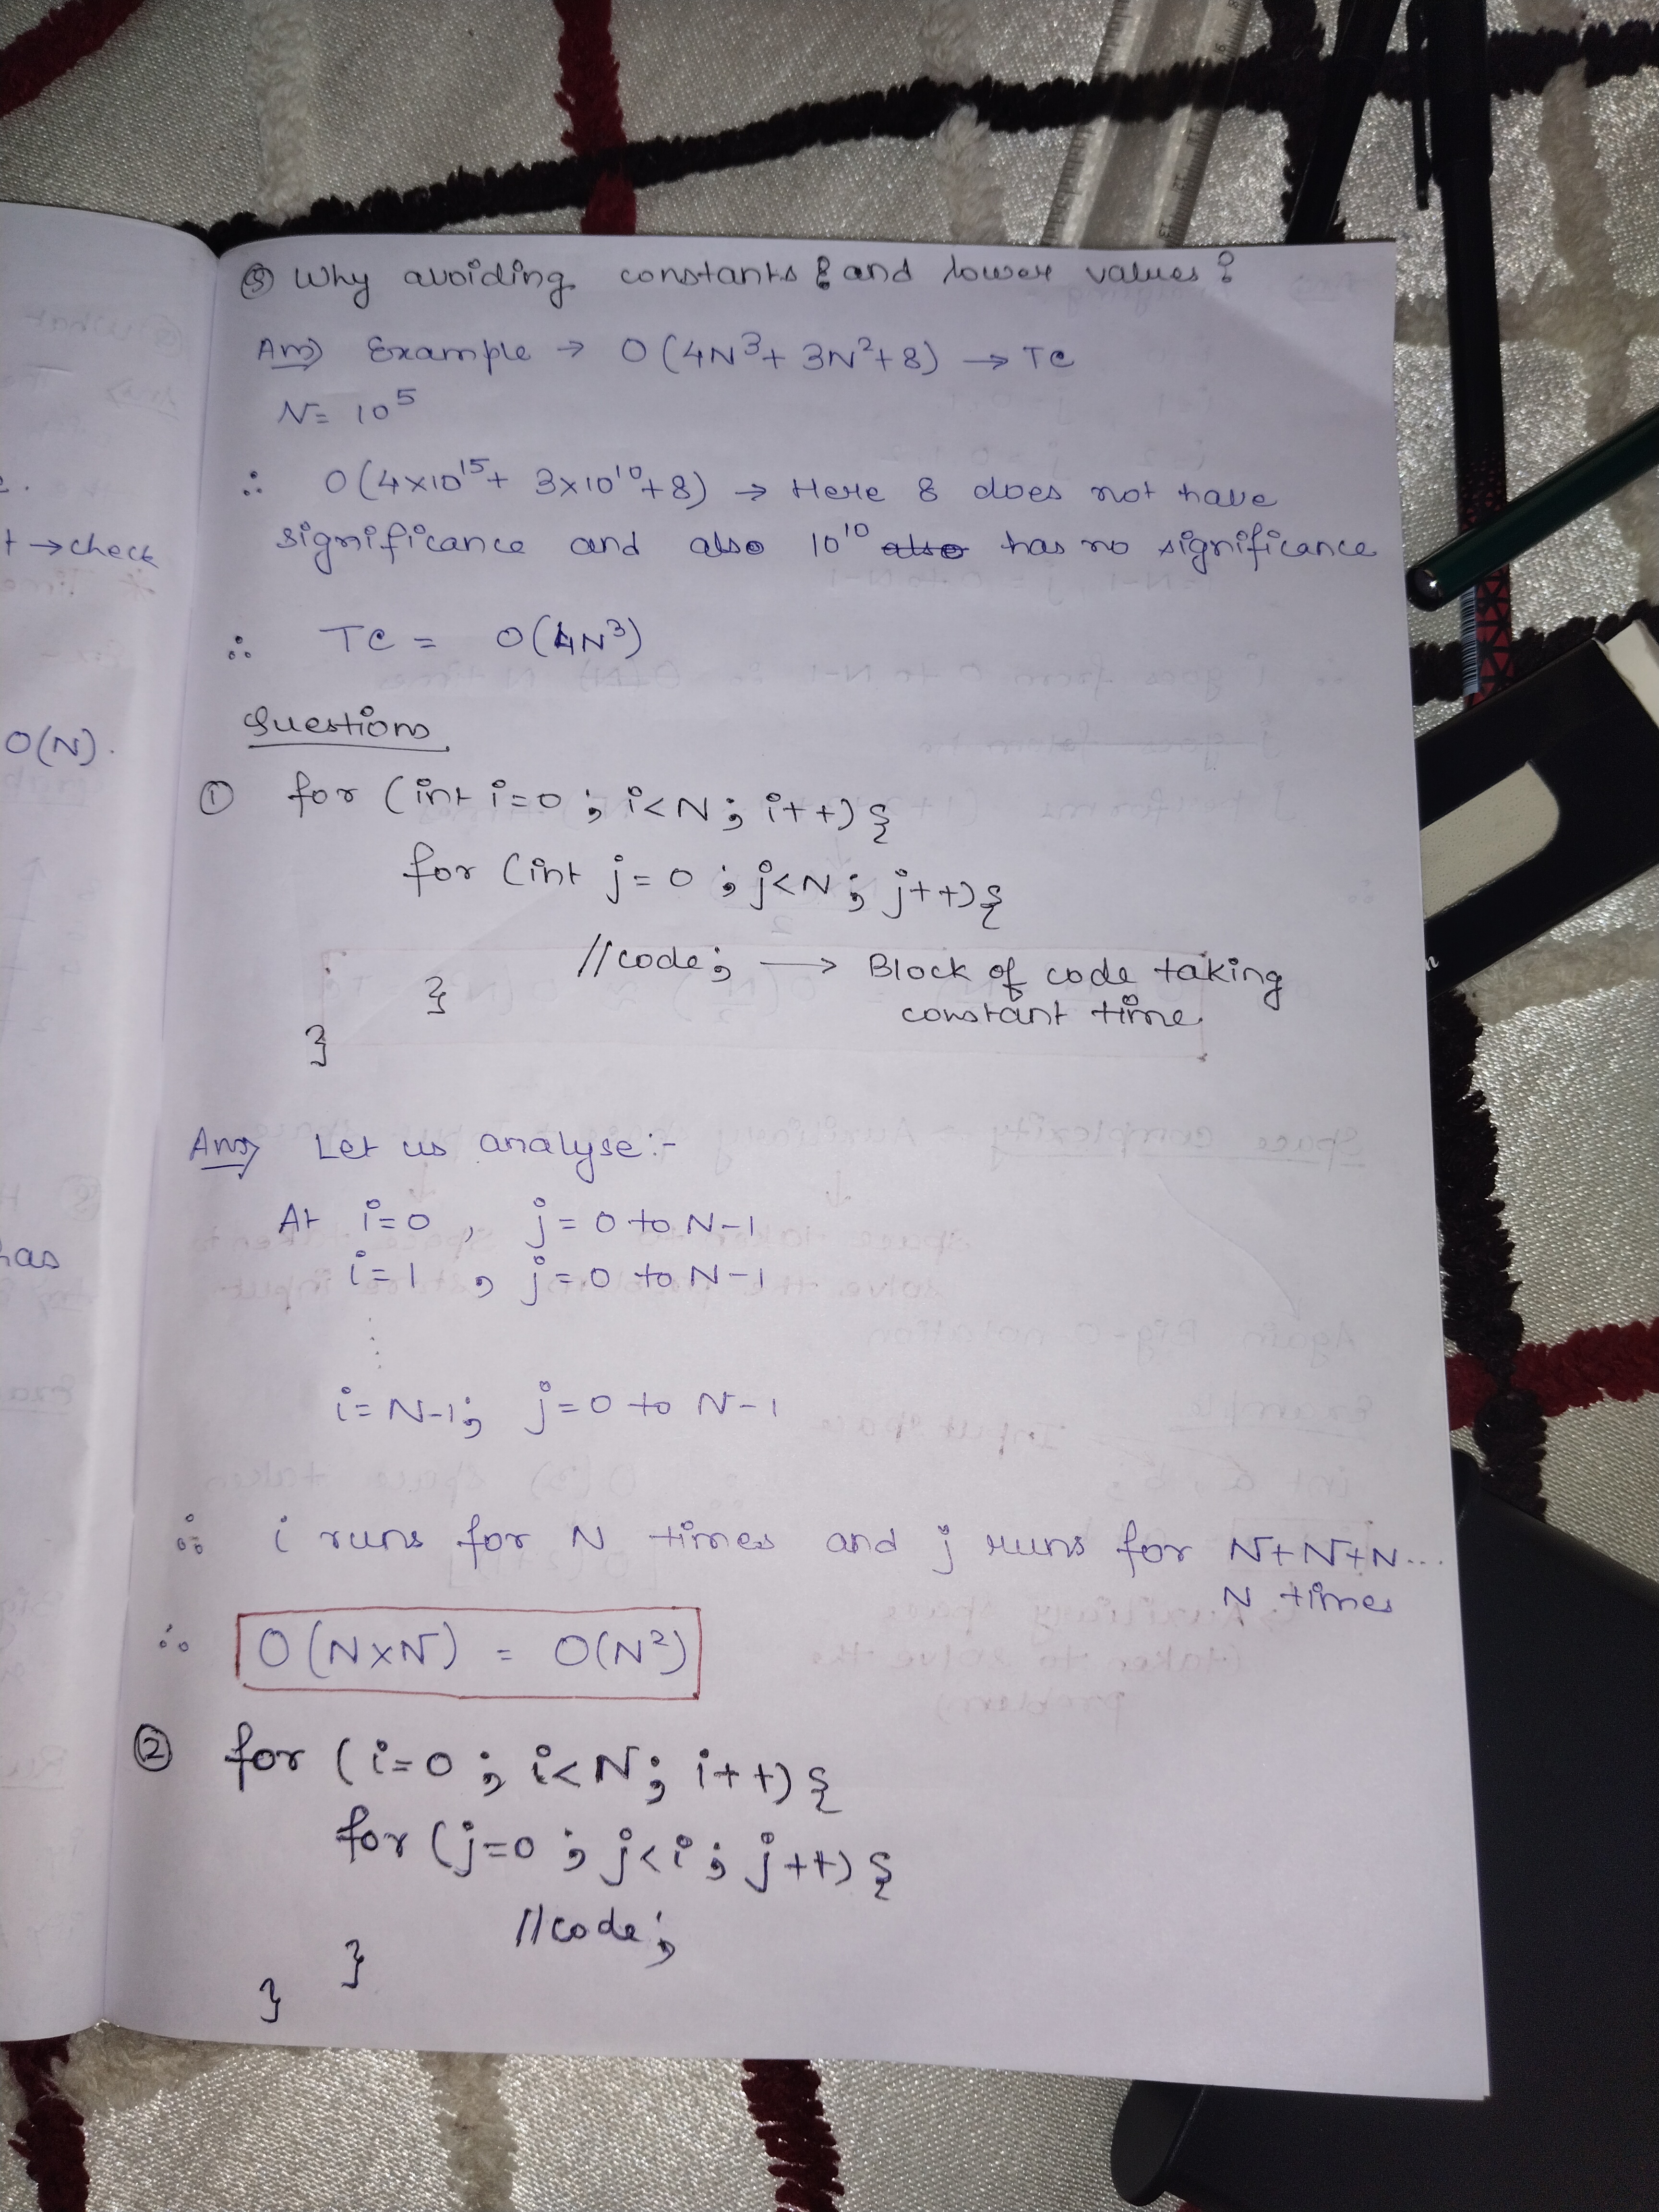 ③ Why avoiding constants & and lower values?
Ans) Example → O(4N³+ 3N²+8) → TC
N= 10⁵
∴ O(4×10¹⁵+ 3×10¹⁰+8) → Here 8 does not have
significance and also 10¹⁰ also has no significance
∴ TC = O(4N³)
Questions
① for (int i=0 ; i<N; i++) {
for (int j=0 ; j<N; j++){
//code; → Block of code taking
constant time
}
}
Ans) Let us analyse:-
At i=0 , j=0 to N-1
i=1 , j=0 to N-1
⋮
i=N-1; j=0 to N-1
∴ i runs for N times and j runs for N+N+N...
N times
∴ O(N×N) = O(N²)
② for (i=0 ; i<N; i++) {
for (j=0 ; j<i ; j++) {
//code;
}
}
t → check
O(N).
has